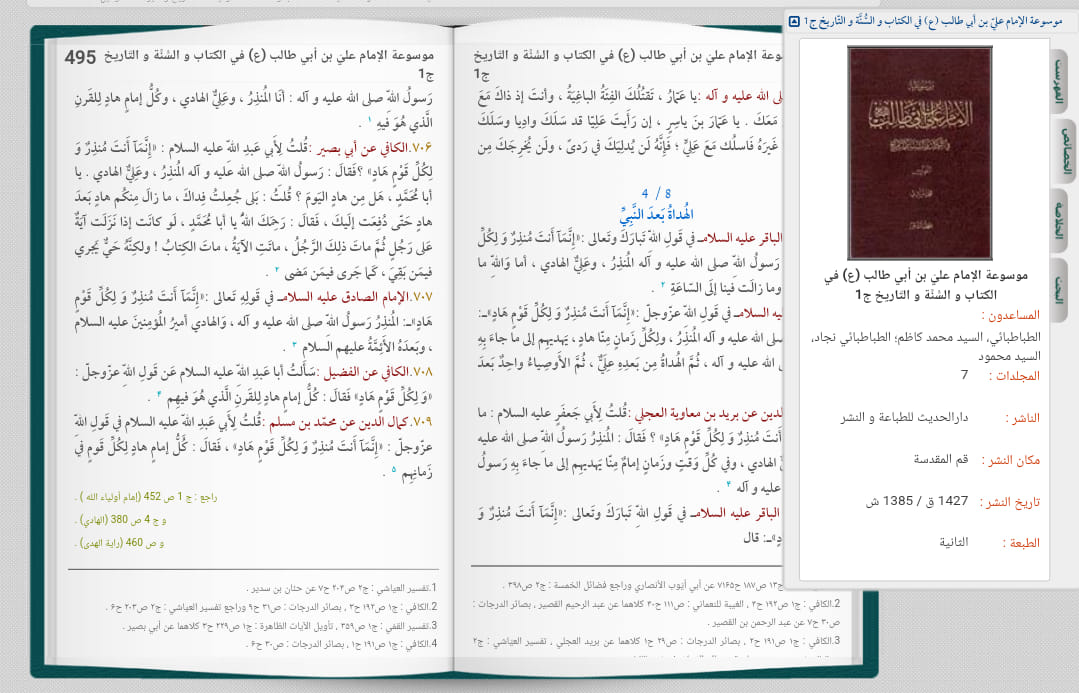 موسوعة الإمام عليّ بن أبي طالب (ع) في الكتاب و السُّنَّة و التّاريخ ج1
المساعدون :
موسوعة الإمام عليّ بن أبي طالب (ع) في
الكتاب و السُّنَّة و التّاريخ ج1
الطباطبائي، السيد محمد كاظم؛ الطباطبائي نجاد،
السيد محمود
المجلدات : 7
الناشر : دارالحديث للطباعة و النشر
مكان النشر : قم المقدسة
تاريخ النشر : 1427 ق / 1385 ش
الطبعة : الثانية
الفهرست
الخصائص
الخلاصة
البحث
موسوعة الإمام عليّ بن أبي طالب (ع) في الكتاب و السُّنَّة و التّاريخ
ج1
الله عليه و آله :يا عَمّارُ ، تَقتُلُكَ الفِئَةُ الباغِيَةُ ، وأنتَ إذ ذاكَ مَعَ
مَعَكَ . يا عَمّارَ بنَ ياسِرٍ ، إن رَأَيتَ عَلِيّا قد سَلَكَ وادِيا وسَلَكَ
غَيرَهُ فَاسلُك مَعَ عَلِيٍّ ؛ فَإِنَّهُ لَن يُدلِيَكَ في رَدىً ، ولَن يُخرِجَكَ مِن
8 / 4
الهُداةُ بَعدَ النَّبِيِّ
الباقر عليه السلامـ في قَولِ اللّهِ تَبارَكَ وتَعالى :«إِنَّمَآ أَنتَ مُنذِرٌ وَ لِكُلِّ
رَسولُ اللّهِ صلى الله عليه و آله المُنذِرُ ، وعَلِيٌّ الهادي ، أما وَاللّهِ ما
وما زالَت فينا إلَى السّاعَةِ ۲ .
عليه السلامـ في قَولِ اللّهِ عَزَّوجلّ :«إِنَّمَآ أَنتَ مُنذِرٌ وَ لِكُلِّ قَوْمٍ هَادٍ»ـ:
صلى الله عليه و آله المُنذِرُ ، ولِكُلِّ زَمانٍ مِنّا هادٍ ، يَهديهِم إلى ما جاءَ بِهِ
الله عليه و آله ، ثُمَّ الهُداةُ مِن بَعدِهِ عَلِيٌّ ، ثُمَّ الأَوصِياءُ واحِدٌ بَعدَ
الدين عن بريد بن معاوية العجلي :قُلتُ لِأَبي جَعفَرٍ عليه السلام : ما
أَنتَ مُنذِرٌ وَ لِكُلِّ قَوْمٍ هَادٍ» ؟ فَقالَ : المُنذِرُ رَسولُ اللّهِ صلى الله عليه
الهادي ، وفي كُلِّ وَقتٍ وزَمانٍ إمامٌ مِنّا يَهديهِم إلى ما جاءَ بِهِ رَسولُ
عليه و آله ۴ .
الباقر عليه السلامـ في قَولِ اللّهِ تَبارَكَ وتَعالى :«إِنَّمَآ أَنتَ مُنذِرٌ وَ
ـ: قال
ج۱۳ ص۱۸۷ ح۷۱۶۵ عن أبي أيّوب الأنصاري وراجع فضائل الخمسة : ج۲ ص۳۹۸ .
2.الكافي : ج۱ ص۱۹۲ ح۴ ، الغيبة للنعماني : ص۱۱۱ ح۴۰ كلاهما عن عبد الرحيم القصير ، بصائر الدرجات :
ص۳۰ ح۷ عن عبد الرحمن بن القصير .
3.الكافي : ج۱ ص۱۹۱ ح۲ ، بصائر الدرجات : ص۲۹ ح۱ كلاهما عن بريد العجلي ، تفسير العياشي : ج۲
موسوعة الإمام عليّ بن أبي طالب (ع) في الكتاب و السُّنَّة و التّاريخ 495
ج1
رَسولُ اللّهِ صلى الله عليه و آله : أنَا المُنذِرُ ، وعَلِيٌّ الهادي ، وكُلُّ إمامٍ هادٍ لِلقَرنِ
الَّذي هُوَ فيهِ ۱ .
۷۰۶.الكافي عن أبي بصير :قُلتُ لِأَبي عَبدِ اللّهِ عليه السلام : «إِنَّمَآ أَنتَ مُنذِرٌ وَ
لِكُلِّ قَوْمٍ هَادٍ» ؟فَقالَ : رَسولُ اللّهِ صلى الله عليه و آله المُنذِرُ ، وعَلِيٌّ الهادي . يا
أبا مُحَمَّدٍ ، هَل مِن هادٍ اليَومَ ؟ قُلتُ : بَلى جُعِلتُ فِداكَ ، ما زالَ مِنكُم هادٍ بَعدَ
هادٍ حَتّى دُفِعَت إلَيكَ ، فَقالَ : رَحِمَكَ اللّهُ يا أبا مُحَمَّدٍ ، لَو كانَت إذا نَزَلَت آيَةٌ
عَلى رَجُلٍ ثُمَّ ماتَ ذلِكَ الرَّجُلُ ، ماتَتِ الآيَةُ ، ماتَ الكِتابُ ! ولكِنَّهُ حَيٌّ يَجري
فيمَن بَقِيَ ، كَما جَرى فيمَن مَضى ۲ .
۷۰۷.الإمام الصادق عليه السلامـ في قَولِهِ تَعالى :«إِنَّمَآ أَنتَ مُنذِرٌ وَ لِكُلِّ قَوْمٍ
هَادٍ»ـ: المُنذِرُ رَسولُ اللّهِ صلى الله عليه و آله ، وَالهادي أميرُ المُؤمِنينَ عليه السلام
، وبَعدَهُ الأَئِمَّةُ عليهم السلام ۳ .
۷۰۸.الكافي عن الفضيل :سَأَلتُ أبا عَبدِ اللّهِ عليه السلام عَن قَولِ اللّهِ عزّوجلّ :
«وَ لِكُلِّ قَوْمٍ هَادٍ» فَقالَ : كُلُّ إمامٍ هادٍ لِلقَرنِ الَّذي هُوَ فيهِم ۴ .
۷۰۹.كمال الدين عن محمّد بن مسلم :قُلتُ لِأَبي عَبدِ اللّهِ عليه السلام في قَولِ اللّهِ
عزّوجلّ : «إِنَّمَآ أَنتَ مُنذِرٌ وَ لِكُلِّ قَوْمٍ هَادٍ» ، فَقالَ : كُلُّ إمامٍ هادٍ لِكُلِّ قَومٍ في
زَمانِهِم ۵ .
راجع : ج 1 ص 452 (إمام أولياء الله ) .
و ج 4 ص 380 (الهادي) .
و ص 460 (راية الهدى) .
1.تفسير العياشي : ج۲ ص۲۰۴ ح۷ عن حنان بن سدير .
2.الكافي : ج۱ ص۱۹۲ ح۳ ، بصائر الدرجات : ص۳۱ ح۹ وراجع تفسير العياشي : ج۲ ص۲۰۳ ح۶ .
3.تفسير القمّي : ج۱ ص۳۵۹ ، تأويل الآيات الظاهرة : ج۱ ص۲۲۹ ح۳ كلاهما عن أبي بصير .
4.الكافي : ج۱ ص۱۹۱ ح۱ ، بصائر الدرجات : ص۳۰ ح۶ .